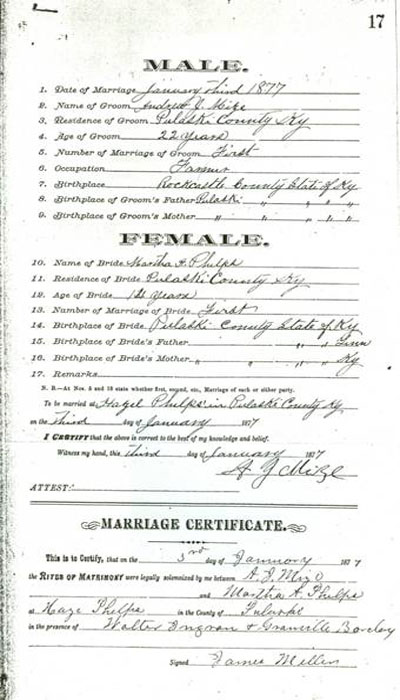 17
MALE.
1. Date of Marriage January third 1877
2. Name of Groom Andrew J. Mize
3. Residence of Groom Pulaski County Ky
4. Age of Groom 22 years
5. Number of Marriage of Groom First
6. Occupation Farmer
7. Birthplace Rockcastle County State of Ky
8. Birthplace of Groom's Father Pulaski " " " "
9. Birthplace of Groom's Mother " " " " "
FEMALE.
10. Name of Bride Martha A. Phelps
11. Residence of Bride Pulaski County Ky
12. Age of Bride years
13. Number of Marriage of Bride First
14. Birthplace of Bride Pulaski County State of Ky
15. Birthplace of Bride's Father " " Tenn
16. Birthplace of Bride's Mother " " " Ky
17. Remarks
N. B.—At Nos. 5 and 13 state whether first, second, etc., Marriage of each or either party.
To be married at Hazel Phelps' in Pulaski County Ky
on the third day of January 1877
I CERTIFY that the above is correct to the best of my knowledge and belief.
Witness my hand, this third day of January 1877
A J Mize
ATTEST:
MARRIAGE CERTIFICATE.
This is to Certify, that on the 3rd day of January 1877
the RITES OF MATRIMONY were legally solemnized by me between A. J. Mize
and Martha A. Phelps
at Haze Phelps in the County of Pulaski
in the presence of Walter Ingram & Granville Barclay
Signed James Miller